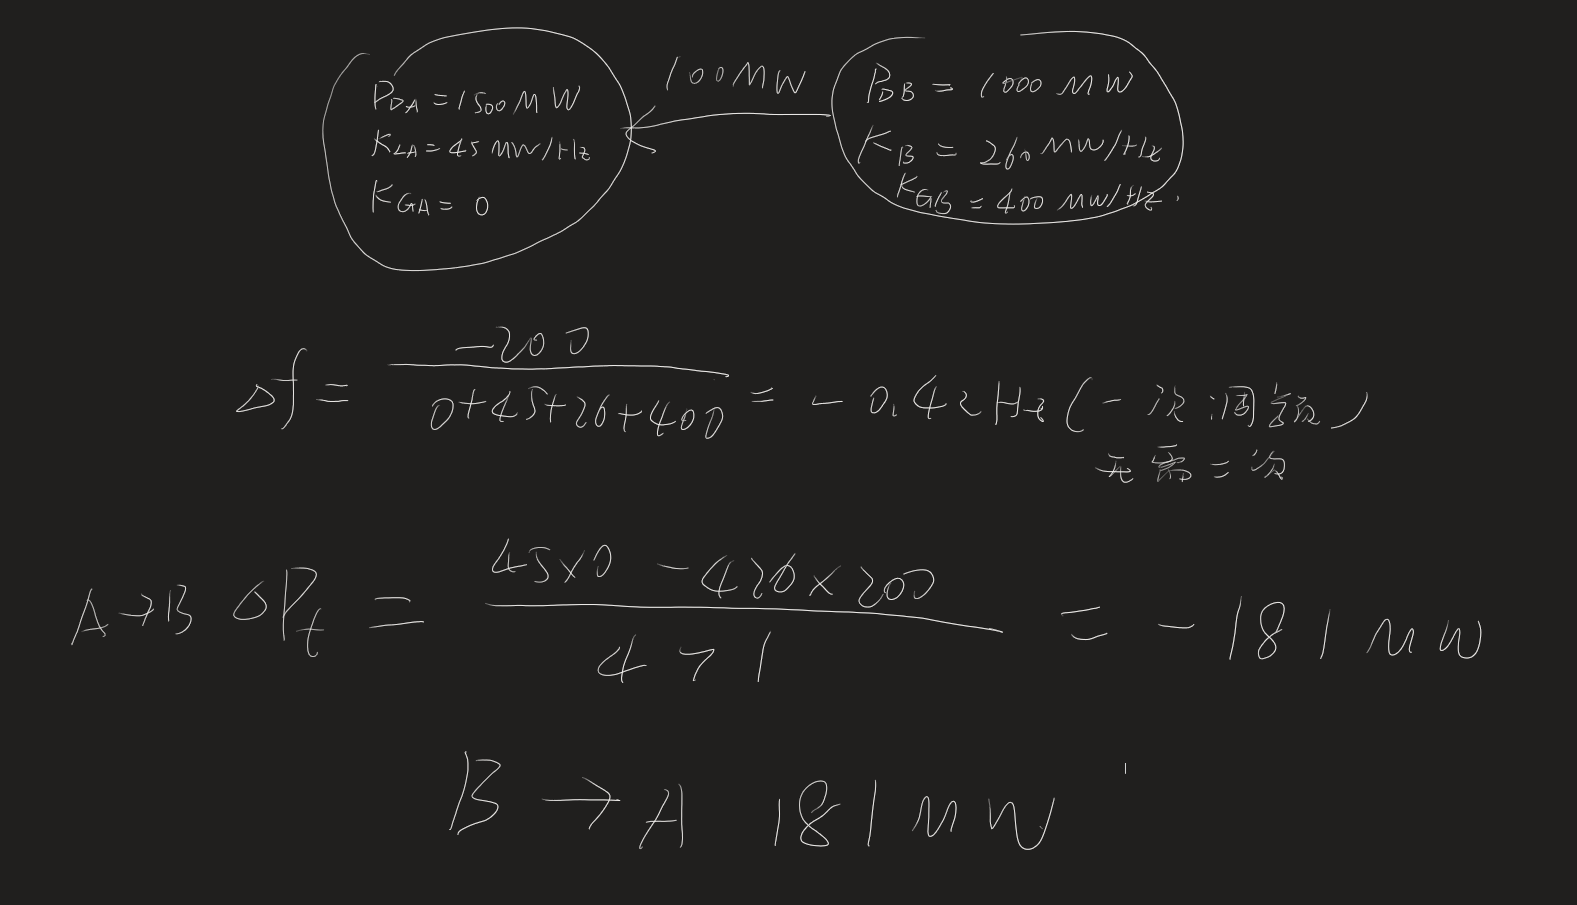 P_DA = 1500 MW
K_LA = 45 MW/Hz
K_GA = 0
100MW
P_DB = 1000 MW
K_B = 260 MW/Hz
K_GB = 400 MW/Hz.
Δf = -200 / (0+45+26+400) = -0.42Hz (一次调频)
无需二次
A→B ΔP_t = (45×0 - 426×200) / 471 = -181 MW
B → A 181 MW